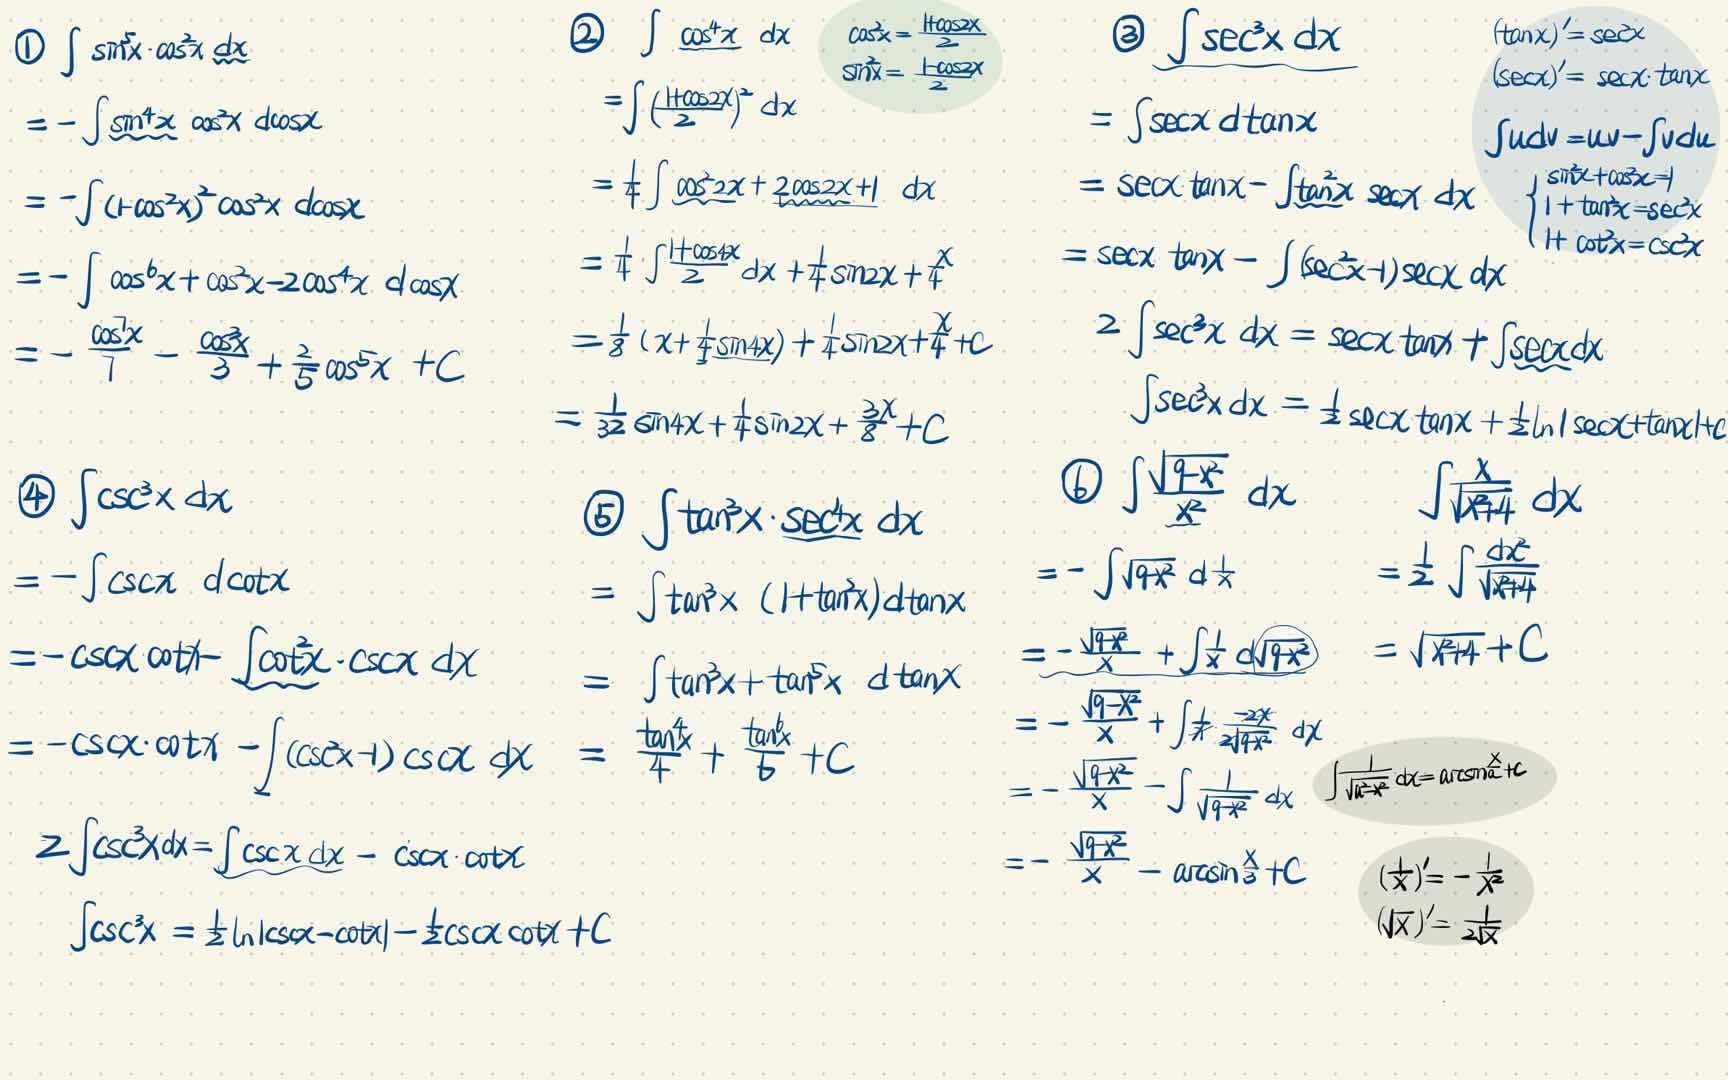 ① ∫ sin⁵x·cos²x dx
= - ∫ sin⁴x cos²x dcosx
= - ∫ (1-cos²x)² cos²x dcosx
= - ∫ cos⁶x + cos²x - 2cos⁴x dcosx
= - cos⁷x/7 - cos³x/3 + 2/5 cos⁵x + C
② ∫ cos⁴x dx
cos²x = (1+cos2x)/2
sin²x = (1-cos2x)/2
= ∫ ((1+cos2x)/2)² dx
= 1/4 ∫ cos²2x + 2cos2x + 1 dx
= 1/4 ∫ (1+cos4x)/2 dx + 1/4 sin2x + x/4
= 1/8 (x + 1/4 sin4x) + 1/4 sin2x + x/4 + C
= 1/32 sin4x + 1/4 sin2x + 3x/8 + C
③ ∫ sec³x dx
(tanx)′ = sec²x
(secx)′ = secx·tanx
∫udv = uv - ∫vdu
sin²x + cos²x = 1
1 + tan²x = sec²x
1 + cot²x = csc²x
= ∫ secx dtanx
= secx tanx - ∫ tan²x secx dx
= secx tanx - ∫ (sec²x-1) secx dx
2 ∫ sec³x dx = secx tanx + ∫ secx dx
∫ sec³x dx = 1/2 secx tanx + 1/2 ln|secx+tanx| + C
④ ∫ csc³x dx
= - ∫ cscx dcotx
= -cscx cotx - ∫ cot²x·cscx dx
= -cscx·cotx - ∫ (csc²x-1) cscx dx
2 ∫ csc³x dx = ∫ cscx dx - cscx·cotx
∫ csc³x = 1/2 ln|cscx-cotx| - 1/2 cscx cotx + C
⑤ ∫ tan³x·sec⁴x dx
= ∫ tan³x (1+tan²x) dtanx
= ∫ tan³x + tan⁵x dtanx
= tan⁴x/4 + tan⁶x/6 + C
⑥ ∫ √(9-x²)/x² dx
= - ∫ √(9-x²) d 1/x
= - √(9-x²)/x + ∫ 1/x d√(9-x²)
= - √(9-x²)/x + ∫ 1/x · -2x/(2√(9-x²)) dx
= - √(9-x²)/x - ∫ 1/√(9-x²) dx
= - √(9-x²)/x - arcsin x/3 + C
∫ x/√(x²+4) dx
= 1/2 ∫ dx²/√(x²+4)
= √(x²+4) + C
∫ 1/√(a²-x²) dx = arcsin x/a + C
(1/x)′ = - 1/x²
(√x)′ = 1/(2√x)